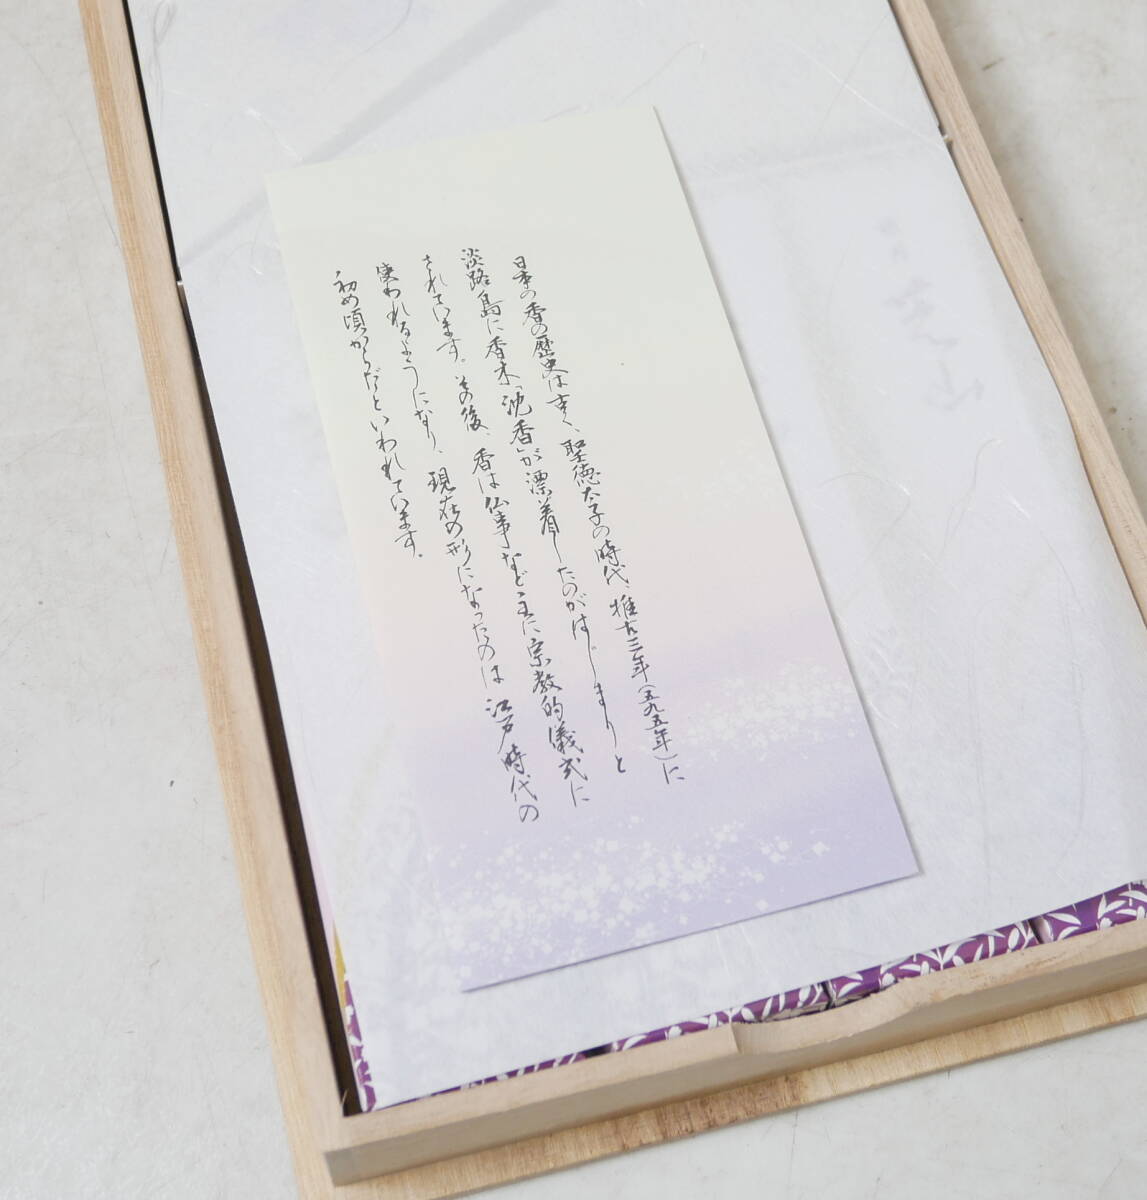 日本の香の歴史は古く、聖徳太子の時代、推古三年(五九五年)に
淡路島に香木「沈香」が漂着したのがはじまりと
されています。その後、香は仏事など主に宗教的儀式に
使われるようになり、現在の形になったのは江戸時代の
初め頃からだといわれています。